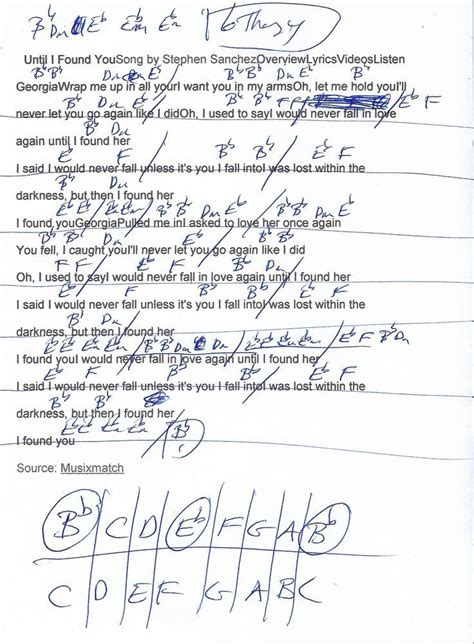 B♭ Dm E♭ E♭m
Until I Found YouSong by Stephen SanchezOverviewLyricsVideosListen
B♭ B♭ Dm E♭ B♭ B♭ Dm E♭
GeorgiaWrap me up in all yourI want you in my armsOh, let me hold youI'll
B♭ Dm E♭ B♭ B♭ F F E♭ F
never let you go again like I didOh, I used to sayI would never fall in love
B♭ Dm
again until I found her
E♭ F B♭ B♭ E♭ F
I said I would never fall unless it's you I fall intoI was lost within the
B♭ Dm
darkness, but then I found her
E♭ E♭ E♭m E♭m B♭ B♭ Dm E♭
I found youGeorgiaPulled me inI asked to love her once again
B♭ B♭ Dm
You fell, I caught youI'll never let you go again like I did
F F E♭ F B♭ Dm
Oh, I used to sayI would never fall in love again until I found her
E♭ F B♭ B♭ E♭ F
I said I would never fall unless it's you I fall intoI was lost within the
B♭ Dm
darkness, but then I found her
E♭ E♭ E♭ E♭ B♭ B♭ Dm Dm E♭ E♭ E♭m E♭m E♭ F B♭ Dm
I found youI would never fall in love again until I found her
E♭ F B♭ B♭ E♭ F
I said I would never fall unless it's you I fall intoI was lost within the
B♭ B♭
darkness, but then I found her
E♭ E♭ E♭m E♭m B♭
I found you
Source: Musixmatch
B♭ C D E♭ F G A B♭
C D E F G A B C